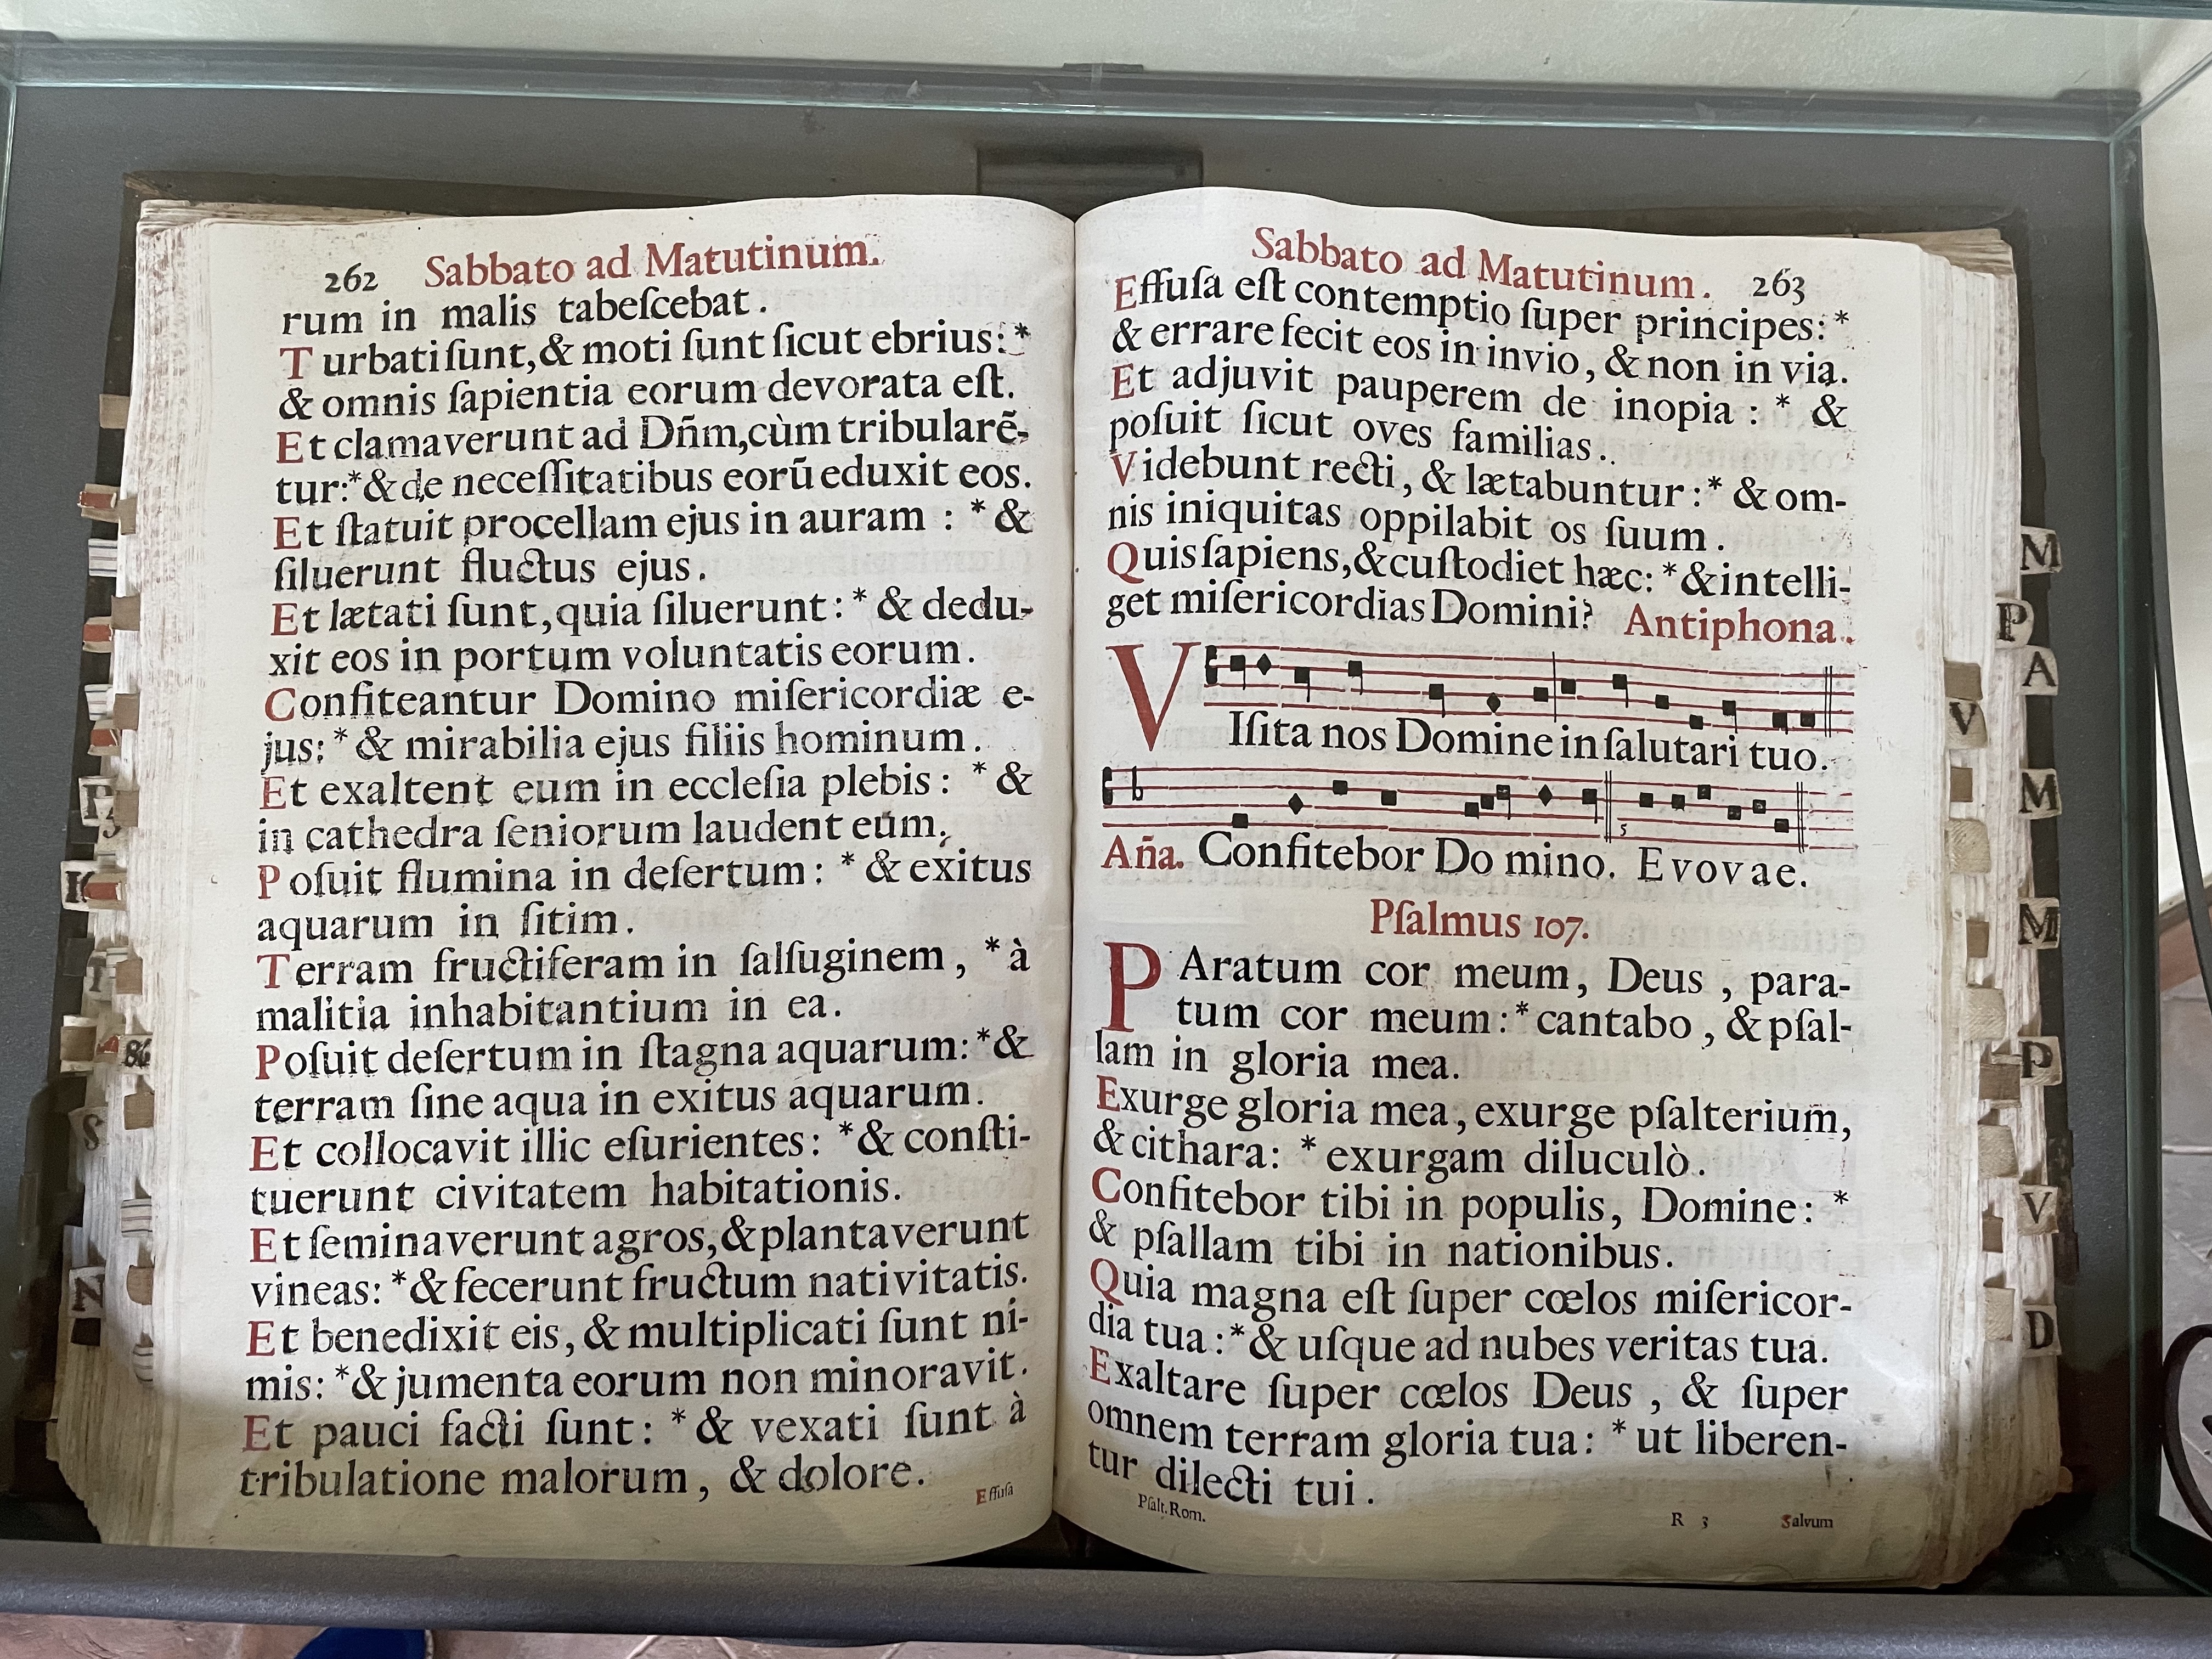 262 Sabbato ad Matutinum.
rum in malis tabeſcebat.
Turbati ſunt, & moti ſunt ſicut ebrius: *
& omnis ſapientia eorum devorata eſt.
Et clamaverunt ad Dñm, cùm tribularẽ-
tur: * & de neceſſitatibus eorū eduxit eos.
Et ſtatuit procellam ejus in auram : * &
ſiluerunt fluctus ejus.
Et lætati ſunt, quia ſiluerunt: * & dedu-
xit eos in portum voluntatis eorum.
Confiteantur Domino miſericordiæ e-
jus: * & mirabilia ejus filiis hominum.
Et exaltent eum in eccleſia plebis: * &
in cathedra ſeniorum laudent eum.
Poſuit flumina in deſertum: * & exitus
aquarum in ſitim.
Terram fructiferam in ſalſuginem, * à
malitia inhabitantium in ea.
Poſuit deſertum in ſtagna aquarum: * &
terram ſine aqua in exitus aquarum.
Et collocavit illic eſurientes: * & conſti-
tuerunt civitatem habitationis.
Et ſeminaverunt agros, & plantaverunt
vineas: * & fecerunt fructum nativitatis.
Et benedixit eis, & multiplicati ſunt ni-
mis: * & jumenta eorum non minoravit.
Et pauci facti ſunt: * & vexati ſunt à
tribulatione malorum, & dolore.
Effuſa
Sabbato ad Matutinum. 263
Effuſa eſt contemptio ſuper principes: *
& errare fecit eos in invio, & non in via.
Et adjuvit pauperem de inopia : * &
poſuit ſicut oves familias.
Videbunt recti, & lætabuntur: * & om-
nis iniquitas oppilabit os ſuum.
Quis ſapiens, & cuſtodiet hæc: * & intelli-
get miſericordias Domini? Antiphona.
VIſita nos Domine in ſalutari tuo.
5
Aña. Confitebor Do mino. E v o v a e.
Pſalmus 107.
PAratum cor meum, Deus, para-
tum cor meum: * cantabo, & pſal-
lam in gloria mea.
Exurge gloria mea, exurge pſalterium,
& cithara: * exurgam diluculò.
Confitebor tibi in populis, Domine: *
& pſallam tibi in nationibus.
Quia magna eſt ſuper cœlos miſericor-
dia tua: * & uſque ad nubes veritas tua.
Exaltare ſuper cœlos Deus, & ſuper
omnem terram gloria tua: * ut liberen-
tur dilecti tui.
Pſalt. Rom. R 3 Salvum
M
P
A
V
M
M
P
V
D
86
S
N